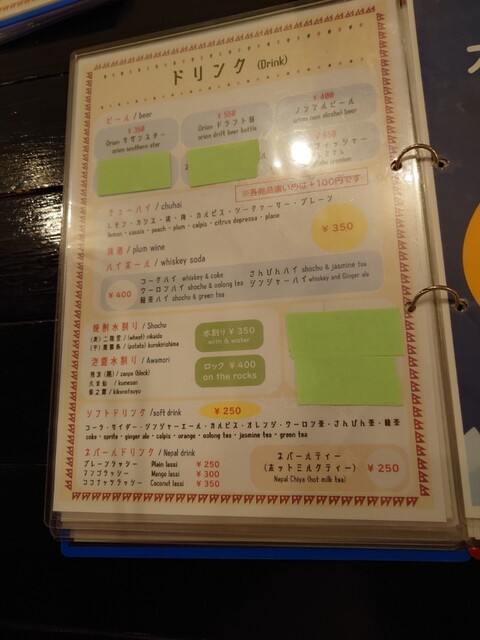 ドリンク (Drink)
ビール / beer
¥350
Orion サザンスター
orion southern star
¥550
Orion ドラフト
orion draft beer bottle
¥400
ノンアルビール
orion non alcohol beer
¥450
※各商品濃いめは+100円です
チューハイ / chuhai
レモン・カシス・桃・梅・カルピス・シークァーサー・プレーン
lemon・cassis・peach・plum・calpis・citrus depressa・plane
¥350
梅酒 / plum wine
ハイボール / whiskey soda
¥400
コークハイ whiskey & coke
さんぴんハイ shochu & jasmine tea
ウーロンハイ shochu & oolong tea
ジンジャーハイ whiskey and Ginger ale
緑茶ハイ shochu & green tea
焼酎水割り / Shochu
(麦) 二階堂 / (wheat) nikaido
(芋) 黒霧島 / (potato) kurokirishima
水割り ¥350
with & water
泡盛水割り / Awamori
残波 (黒) / zanpa (black)
久米仙 / kumesen
菊之露 / kikunotsuyu
ロック ¥400
on the rocks
ソフトドリンク / soft drink
¥250
コーラ・サイダー・ジンジャーエール・カルピス・オレンジ・ウーロン茶・さんぴん茶・緑茶
coke・sprite・ginger ale・calpis・orange・oolong tea・jasmine tea・green tea
ネパールドリンク / Nepal drink
プレーンラッシー Plain lassi ¥250
マンゴラッシー Mango lassi ¥300
ココナッツラッシー Coconut lassi ¥350
ネパールティー
(ホットミルクティー)
Nepal Chiya (hot milk tea)
¥250